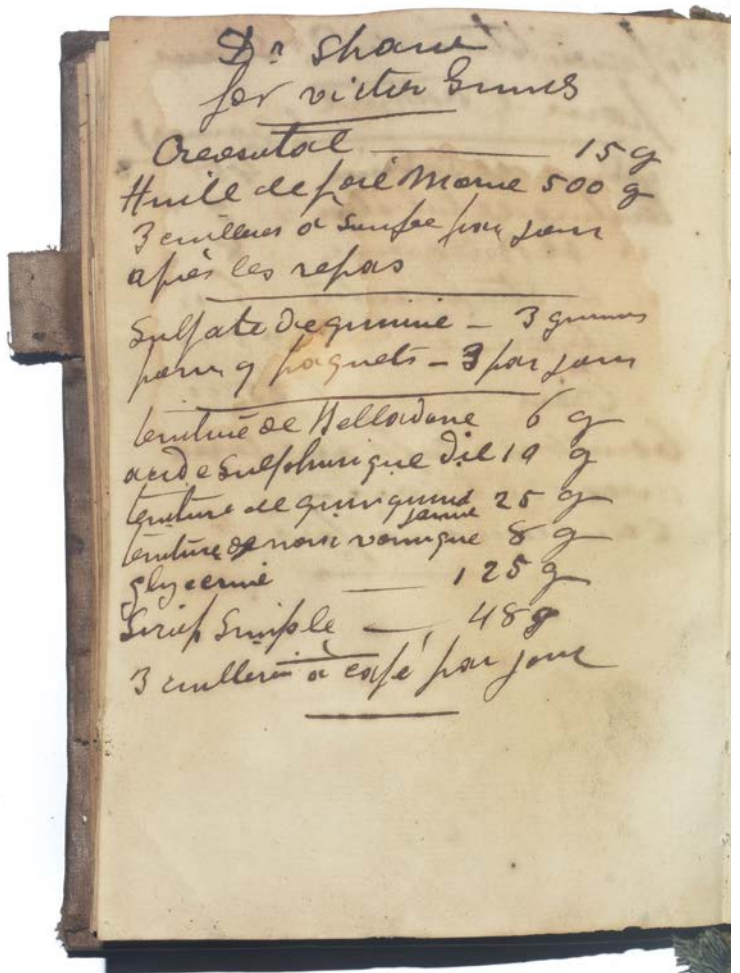 Dr Shaw
for victor
Creosotal — 15 g
Huile de foie Morue 500 g
3 cuilleres a Soupe par jour
après les repas
Sulfate de quinine — 3 grammes
pour 9 paquets — 3 par jour
teinture de Belladone 6 g
acide Sulphurique Dil 10 g
teinture de quinquina
jaune 25 g
teinture de noix vomique 8 g
glycerine — 125 g
Sirop Simple — 48 g
3 cuilleres à café par jour